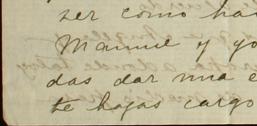 ser como ha
Manuel y yo
das dar una e
te hagas cargo